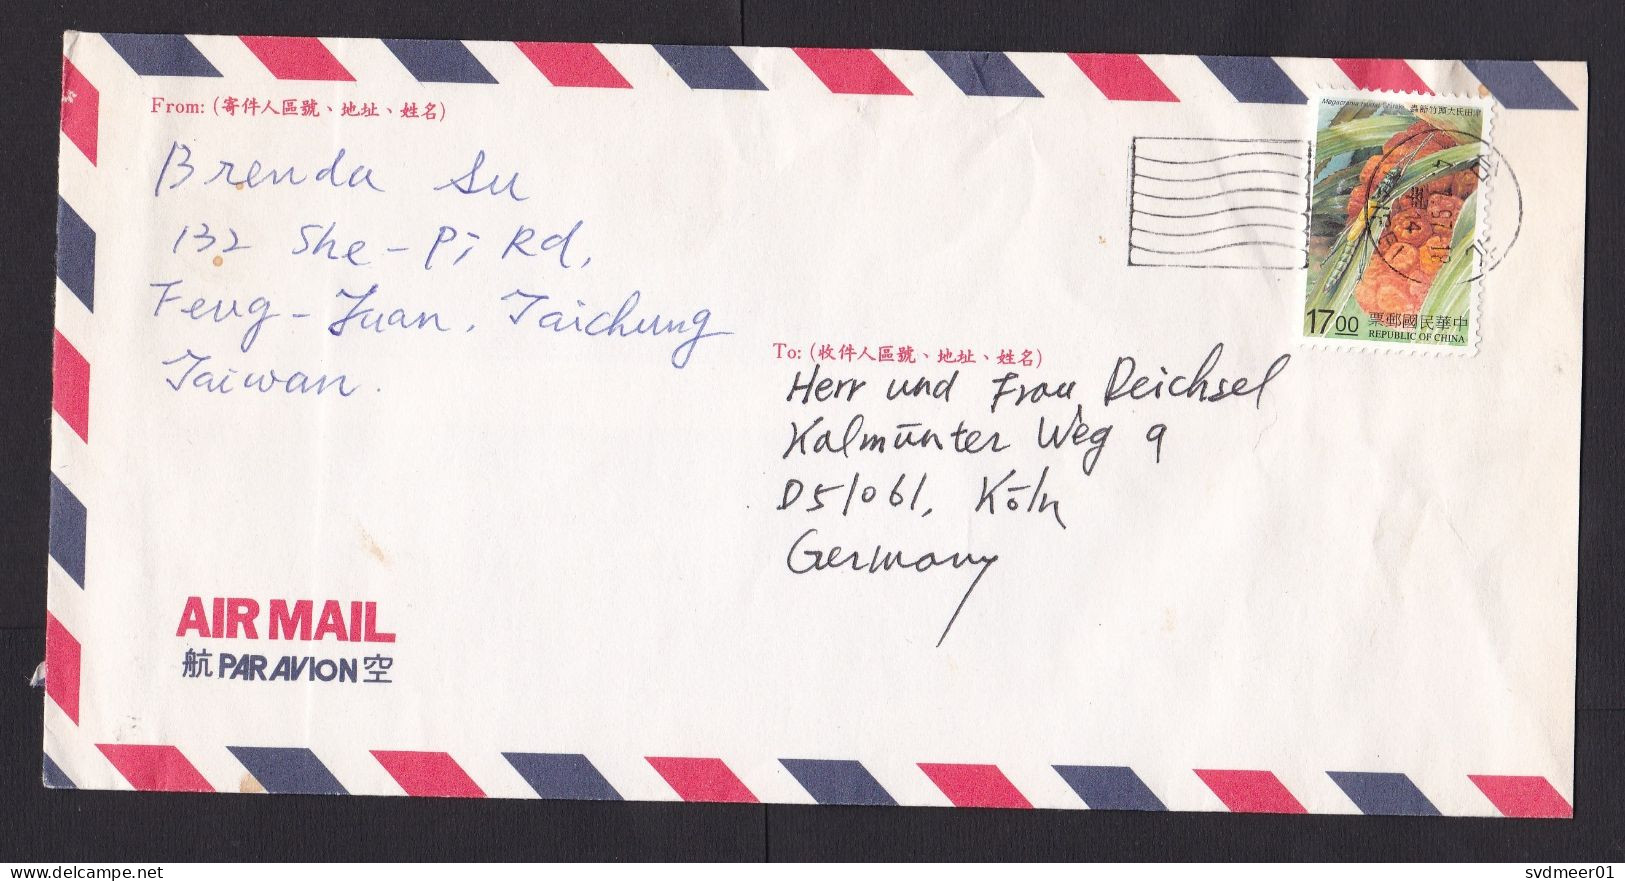 From: (寄件人區號、地址、姓名)
Brenda Su
132 She-Pi Rd,
Feng-Yuan, Taichung
Taiwan.
津田氏大頭竹節蟲
17 00
中華民國郵票
REPUBLIC OF CHINA
To: (收件人區號、地址、姓名)
Herr und Frau Deichsel
Kalmünter Weg 9
D51061, Köln
Germany
AIR MAIL
航 PAR AVION 空
svdmeer01